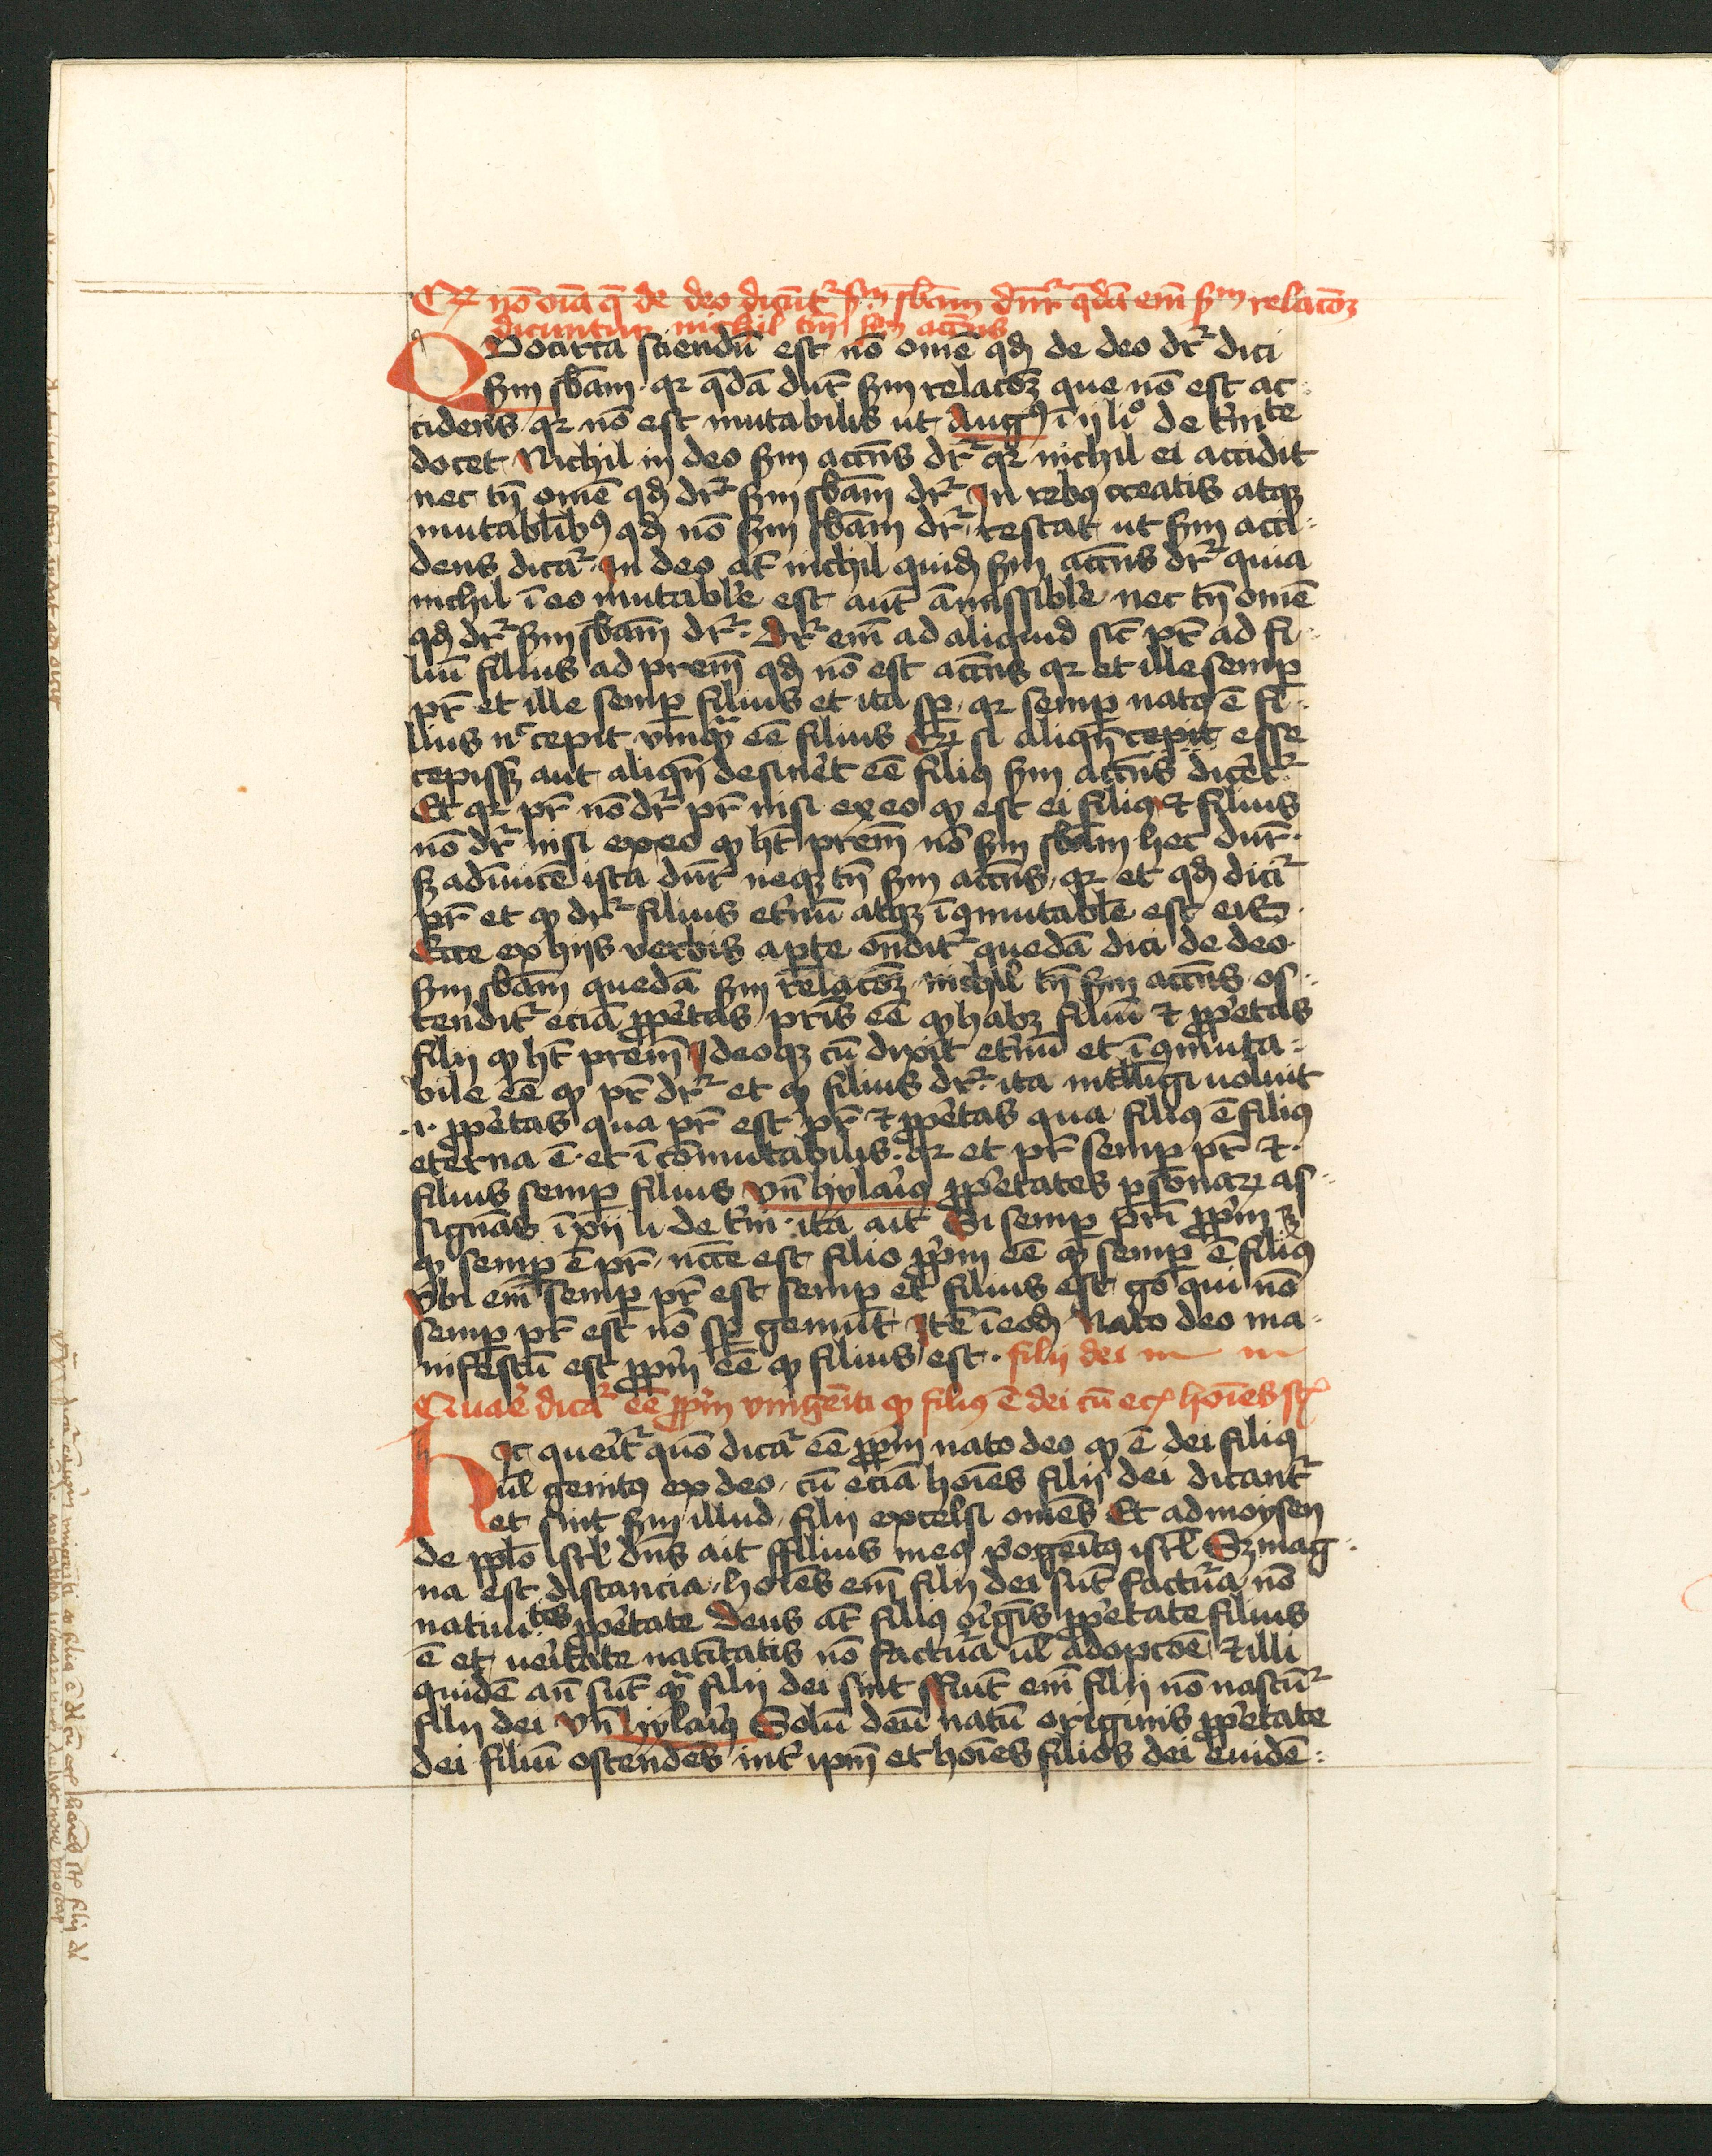 Qꝫ nō oīa q̄ de deo dicūtꝰ ẜm sb̄am dn̄r q̄dā em̄ ẜm relacōꝫ
dicuntur nichil tn̄ ẜm accn̄s
Quocirca sciendū est nō omē qđ de deo dr̄ dici
ẜm sb̄am qꝛ q̄dā dūr ẜm relacōꝫ que nō est ac-
cidens qꝛ nō est mutabilis ut Augꝰ ī v liº de t'nite
docet Nichil in deo ẜm accn̄s dr̄ qꝛ nichil ei accidit
nec tn̄ omē qđ dr̄ ẜm sb̄am dr̄ In rebꝰ creatis atqꝫ
mutabl'ibꝰ qđ nō ẜm sb̄am dr̄ restat ut ẜm acci-
dens dicat̄ In deo at̄ nichil quid' ẜm accn̄s dr̄ quia
nichil ī eo mutabl'e est aut āmissibl'e nec tn̄ omē
qđ dr̄ ẜm sb̄am dr̄. Dr̄ em̄ ad aliquid sic̄ pr̄ ad fi-
liū filius ad prem̄ qđ nō est accn̄s qꝛ et ille semꝑ
pr̄ et ille semꝑ filius et ita sꝑ qꝛ semꝑ natꝰ ē fi-
lius nc̄ cepit vnqᷓ eē filius Qꝛ si aliqn̄ cepit esse
cepissꝫ aut aliqn̄ desin'et eē filiꝰ ẜm accn̄s dic'et̄
Et qꝛ pr̄ nō dr̄ pr̄ nisi ex eo ꝙ est ei filiꝰ ⁊ filius
nō dr̄ nisi ex eo ꝙ ht̄ prem̄ nō ẜm sb̄am hec dūr.
sꝫ adīuicē ista dūr neqꝫ tn̄ ẜm accn̄s qꝛ et qđ dicit̄
pr̄ et ꝙ dr̄ filius et'nū atqꝫ īꝯmutabl'e est eis
Ecce ex hijs verbis aꝑte ondit̄ quedā dici de deo
ẜm sb̄am quedā ẜm relacōꝫ nichil tn̄ ẜm accn̄s os-
tendit̄ eciā ꝓp'etas pr̄is eē ꝙ habꝫ filiū ⁊ ꝓp'etas
filij ꝙ ht̄ prem̄ Ideoqꝫ cū dixit et'nū et īꝯmuta-
bile eē ꝙ pr̄ dr̄ et ꝙ filius dr̄ ita intelligi uoluit
.i. ꝓp'etas qua pr̄ est pr̄ ⁊ ꝓp'etas qua filiꝰ ē filiꝰ
eterna ē et īcōmutabilis. qꝛ et pr̄ semꝑ pr̄ ⁊
filius semꝑ filius Vn̄ hylariꝰ ꝓp'etates ꝑsonarꝫ as-
signās ī xij li de t'ni ita ait Si semꝑ pr̄i ꝓpriū ē
ꝙ semꝑ ē pr̄ nc̄ce est filio ꝓpriū eē ꝙ semꝑ ē filiꝰ
Vbi em̄ semꝑ pr̄ est semꝑ et filius est gº qui nō
semꝑ pr̄ est nō sꝑ genuit Itē ī eod' Nato deo ma-
nifestū est ꝓpriū eē ꝙ filius est. filij dei
Quare dicat̄ eē ꝓpriū vnigeniti ꝙ filiꝰ ē dei cū ec̄ hoīes sc̄
Hic querit̄ quō dicat̄ eē ꝓpriū nato deo ꝙ ē dei filiꝰ
ul' genitꝰ ex deo cū eciā hoīes filij dei dicant̄
et sint ẜm illud filij excelsi omēs Et ad moysen
de ppl'o isrl' dn̄s ait ffilius meꝰ p'ogenitꝰ isrl' Sꝫ mag
na est distancia hoīes em̄ filij dei sūt factura nō
natiuitis ꝓp'etate Deus at̄ filiꝰ orīgis ꝓp'etate filius
ē et ueritate natīitatis nō factura ul' adopcōe ⁊ illi
quidē an̄ sūt qᷓ filij dei sint ffiūt em̄ filij nō nascūt̄
filij dei Vn̄ hylariꝰ Solū deū natū originis ꝓp'etate
dei filiū ostendēs int' ip̄m et hoīes filios dei euidē-